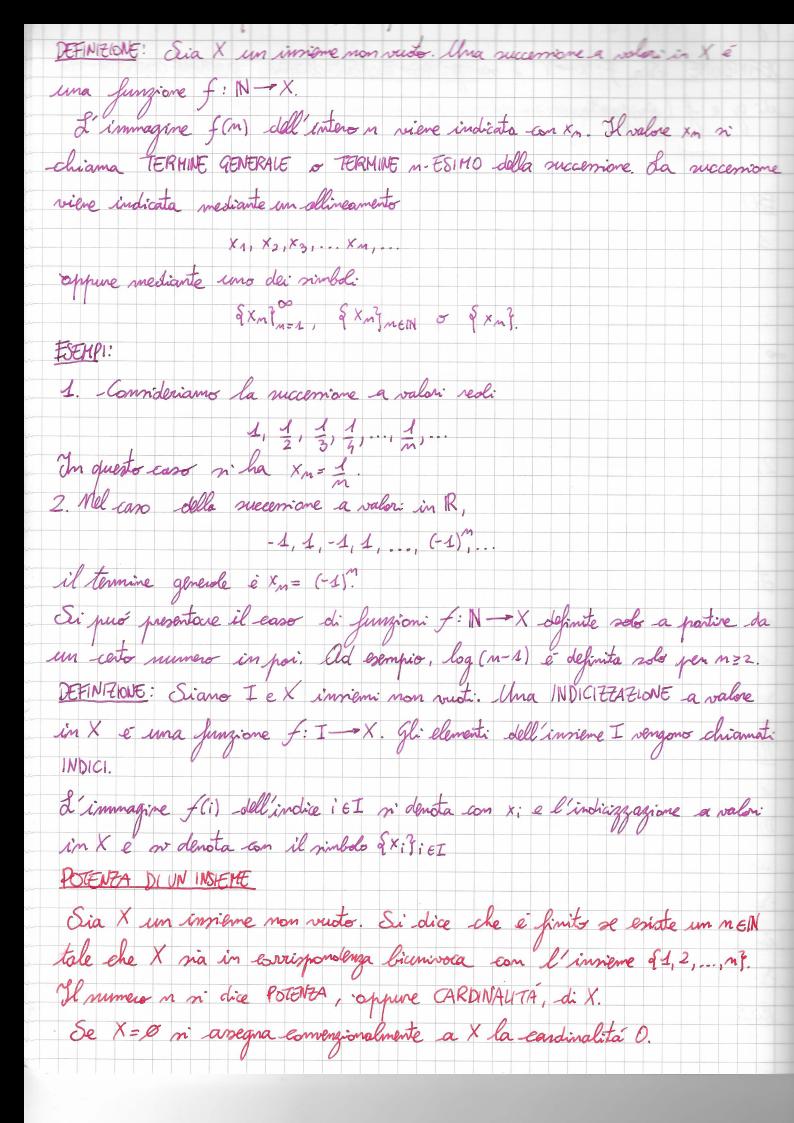 DEFINIZIONE: Sia X un insieme non vuoto. Una successione a valori in X é
una funzione f: ℕ → X.
L'immagine f(n) dell'intero n viene indicata con xₙ. Il valore xₙ si
chiama TERMINE GENERALE o TERMINE n-ESIMO della successione. La successione
viene indicata mediante un allineamento
x₁, x₂, x₃, ... xₙ, ...
oppure mediante uno dei simboli
{xₙ}ₙ₌₁^∞, {xₙ}ₙ∈ℕ o {xₙ}.
ESEMPI:
1. -Consideriamo la successione a valori reali
1, 1/2, 1/3, 1/4, ..., 1/n, ...
In questo caso si ha xₙ = 1/n.
2. Nel caso della successione a valori in ℝ,
-1, 1, -1, 1, ..., (-1)ⁿ, ...
il termine generale é xₙ = (-1)ⁿ.
Si puó presentare il caso di funzioni f: ℕ → X definite solo a partire da
un certo numero in poi. Ad esempio, log(n-1) é definita solo per n≥2.
DEFINIZIONE: Siano I e X insiemi non vuoti. Una INDICIZZAZIONE a valore
in X é una funzione f: I → X. Gli elementi dell'insieme I vengono chiamati
INDICI.
L'immagine f(i) dell'indice i∈I si denota con xᵢ e l'indicizzazione a valori
in X e si denota con il simbolo {xᵢ}i∈I
POTENZA DI UN INSIEME
Sia X un insieme non vuoto. Si dice che é finito se esiste un n∈ℕ
tale che X sia in corrispondenza biunivoca con l'insieme {1, 2, ..., n}.
Il numero n si dice POTENZA, oppure CARDINALITÁ, di X.
Se X=∅ si assegna convenzionalmente a X la cardinalitá 0.